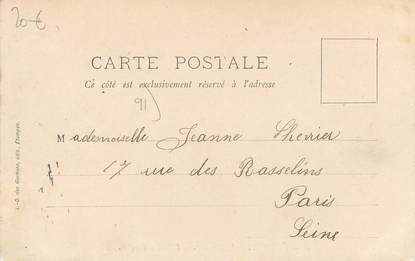 20 €
CARTE POSTALE
Ce côté est exclusivement réservé à l'adresse
91
Mademoiselle Jeanne Chevrier
17 rue des Rasselins
Paris
Seine